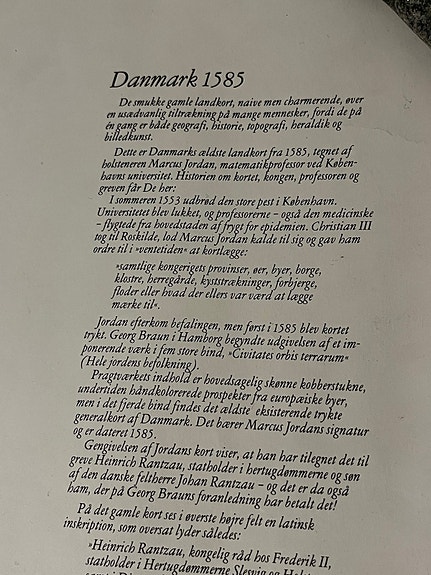 Danmark 1585
De smukke gamle landkort, naive men charmerende, øver
en usædvanlig tiltrækning på mange mennesker, fordi de på
én gang er både geografi, historie, topografi, heraldik og
billedkunst.
Dette er Danmarks ældste landkort fra 1585, tegnet af
holsteneren Marcus Jordan, matematikprofessor ved Køben-
havns universitet. Historien om kortet, kongen, professoren og
greven får De her:
I sommeren 1553 udbrød den store pest i København.
Universitetet blev lukket, og professorerne – også den medicinske
– flygtede fra hovedstaden af frygt for epidemien. Christian III
tog til Roskilde, lod Marcus Jordan kalde til sig og gav ham
ordre til i »ventetiden« at kortlægge:
»samtlige kongerigets provinser, øer, byer, borge,
klostre, herregårde, kyststrækninger, forbjerge,
floder eller hvad der ellers var værd at lægge
mærke til«.
Jordan efterkom befalingen, men først i 1585 blev kortet
trykt. Georg Braun i Hamborg begyndte udgivelsen af et im-
ponerende værk i fem store bind, »Civitates orbis terrarum«
(Hele jordens befolkning).
Pragtværkets indhold er hovedsagelig skønne kobberstukne,
undertiden håndkolorerede prospekter fra europæiske byer,
men i det fjerde bind findes det ældste eksisterende trykte
generalkort af Danmark. Det bærer Marcus Jordans signatur
og er dateret 1585.
Gengivelsen af Jordans kort viser, at han har tilegnet det til
greve Heinrich Rantzau, statholder i hertugdømmerne og søn
af den danske feltherre Johan Rantzau – og det er da også
ham, der på Georg Brauns foranledning har betalt det!
På det gamle kort ses i øverste højre felt en latinsk
inskription, som oversat lyder således:
»Heinrich Rantzau, kongelig råd hos Frederik II,
statholder i Hertugdømmerne Slesvig og